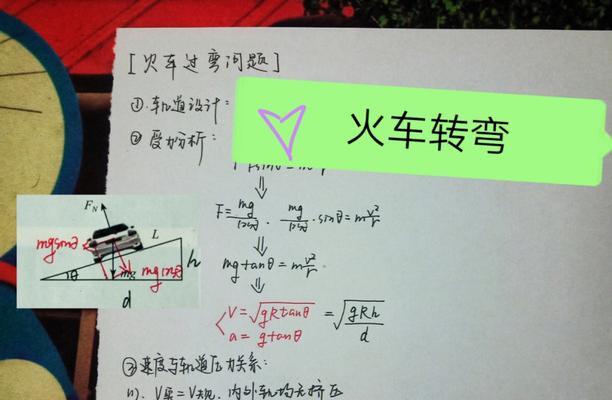 [火车过弯问题]
①.轨道设计:
火车转弯
②受力分析:
⇓
F=mg/cosθ . mg/cosθ·sinθ=mv²/r
⇓
mgtanθ=mv²/r
⇓
V=√gRtanθ =√gRh/d
a=gtanθ
F_N
L
mgsinθ
h
θ
mg
d
③速度与轨道压力关系:
(1). V果=V规, 内外轨均无挤压